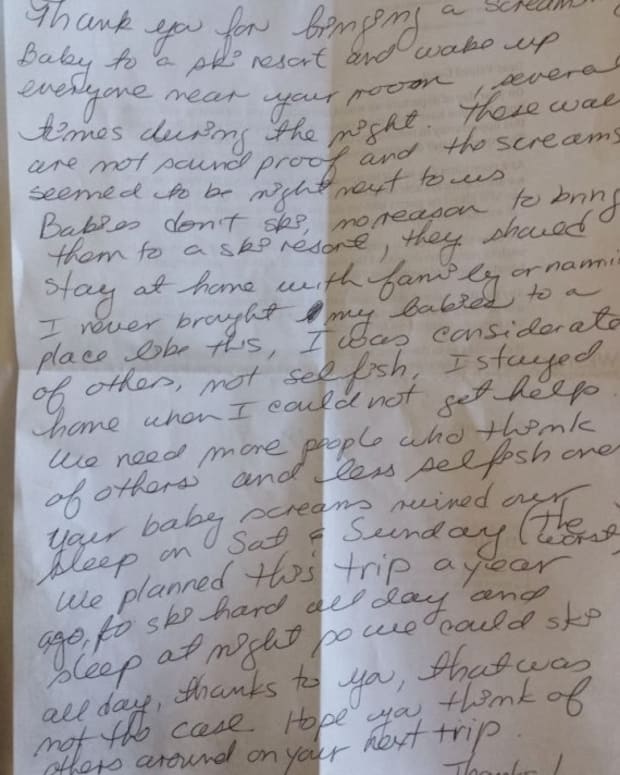 Thank ya for bringing a scream
Baby to a ski resort and wake up
everyone near your room, severa
times during the night. These wal
are not sound proof and the screams
seemed to be right next to us
Babies don't ski, no reason to bring
them to a ski resort, they should
stay at home with family or nanni
I never brought my babies to a
place like this, I was considerate
of others, not selfish. I stayed
home when I could not get help.
We need more people who think
of others and less selfish one
your baby screams ruined our
sleep on Sat & Sunday (The worst
We planned this trip a year
ago, to ski hard all day and
sleep at night so we could ski
all day, thanks to ya, that was
not the case. Hope ya think of
others around on your next trip.
Thanks!